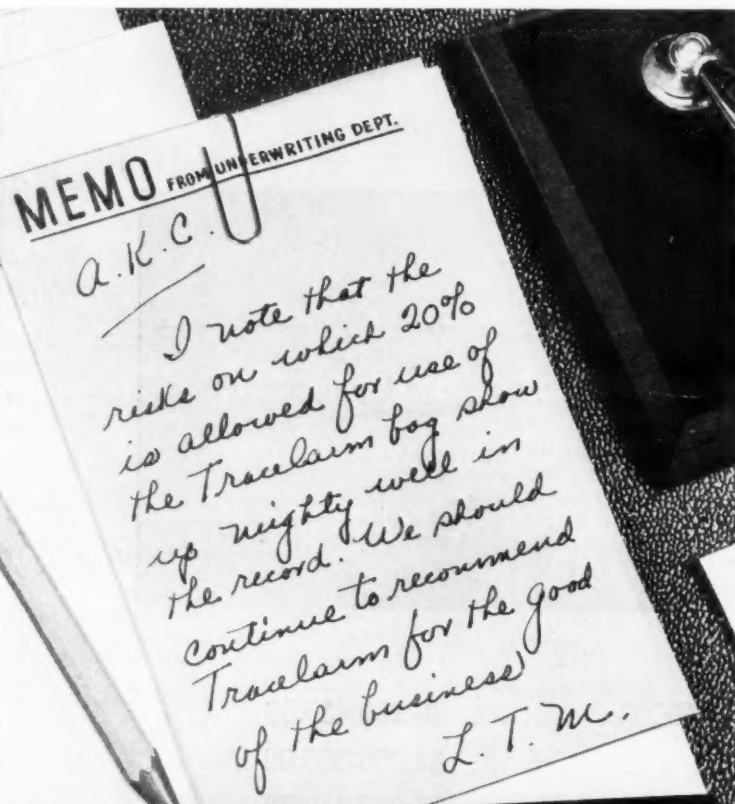 MEMO FROM UNDERWRITING DEPT.
A.K.C.
I note that the
risks on which 20%
is allowed for use of
the Travelarm bag show
up mighty well in
the record. We should
continue to recommend
Travelarm for the good
of the business
L.T.M.